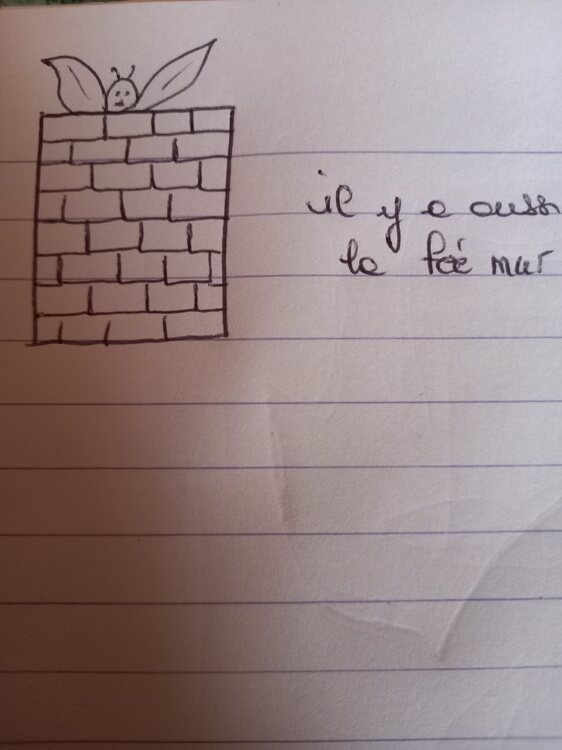 il y a aussi
la fée mur